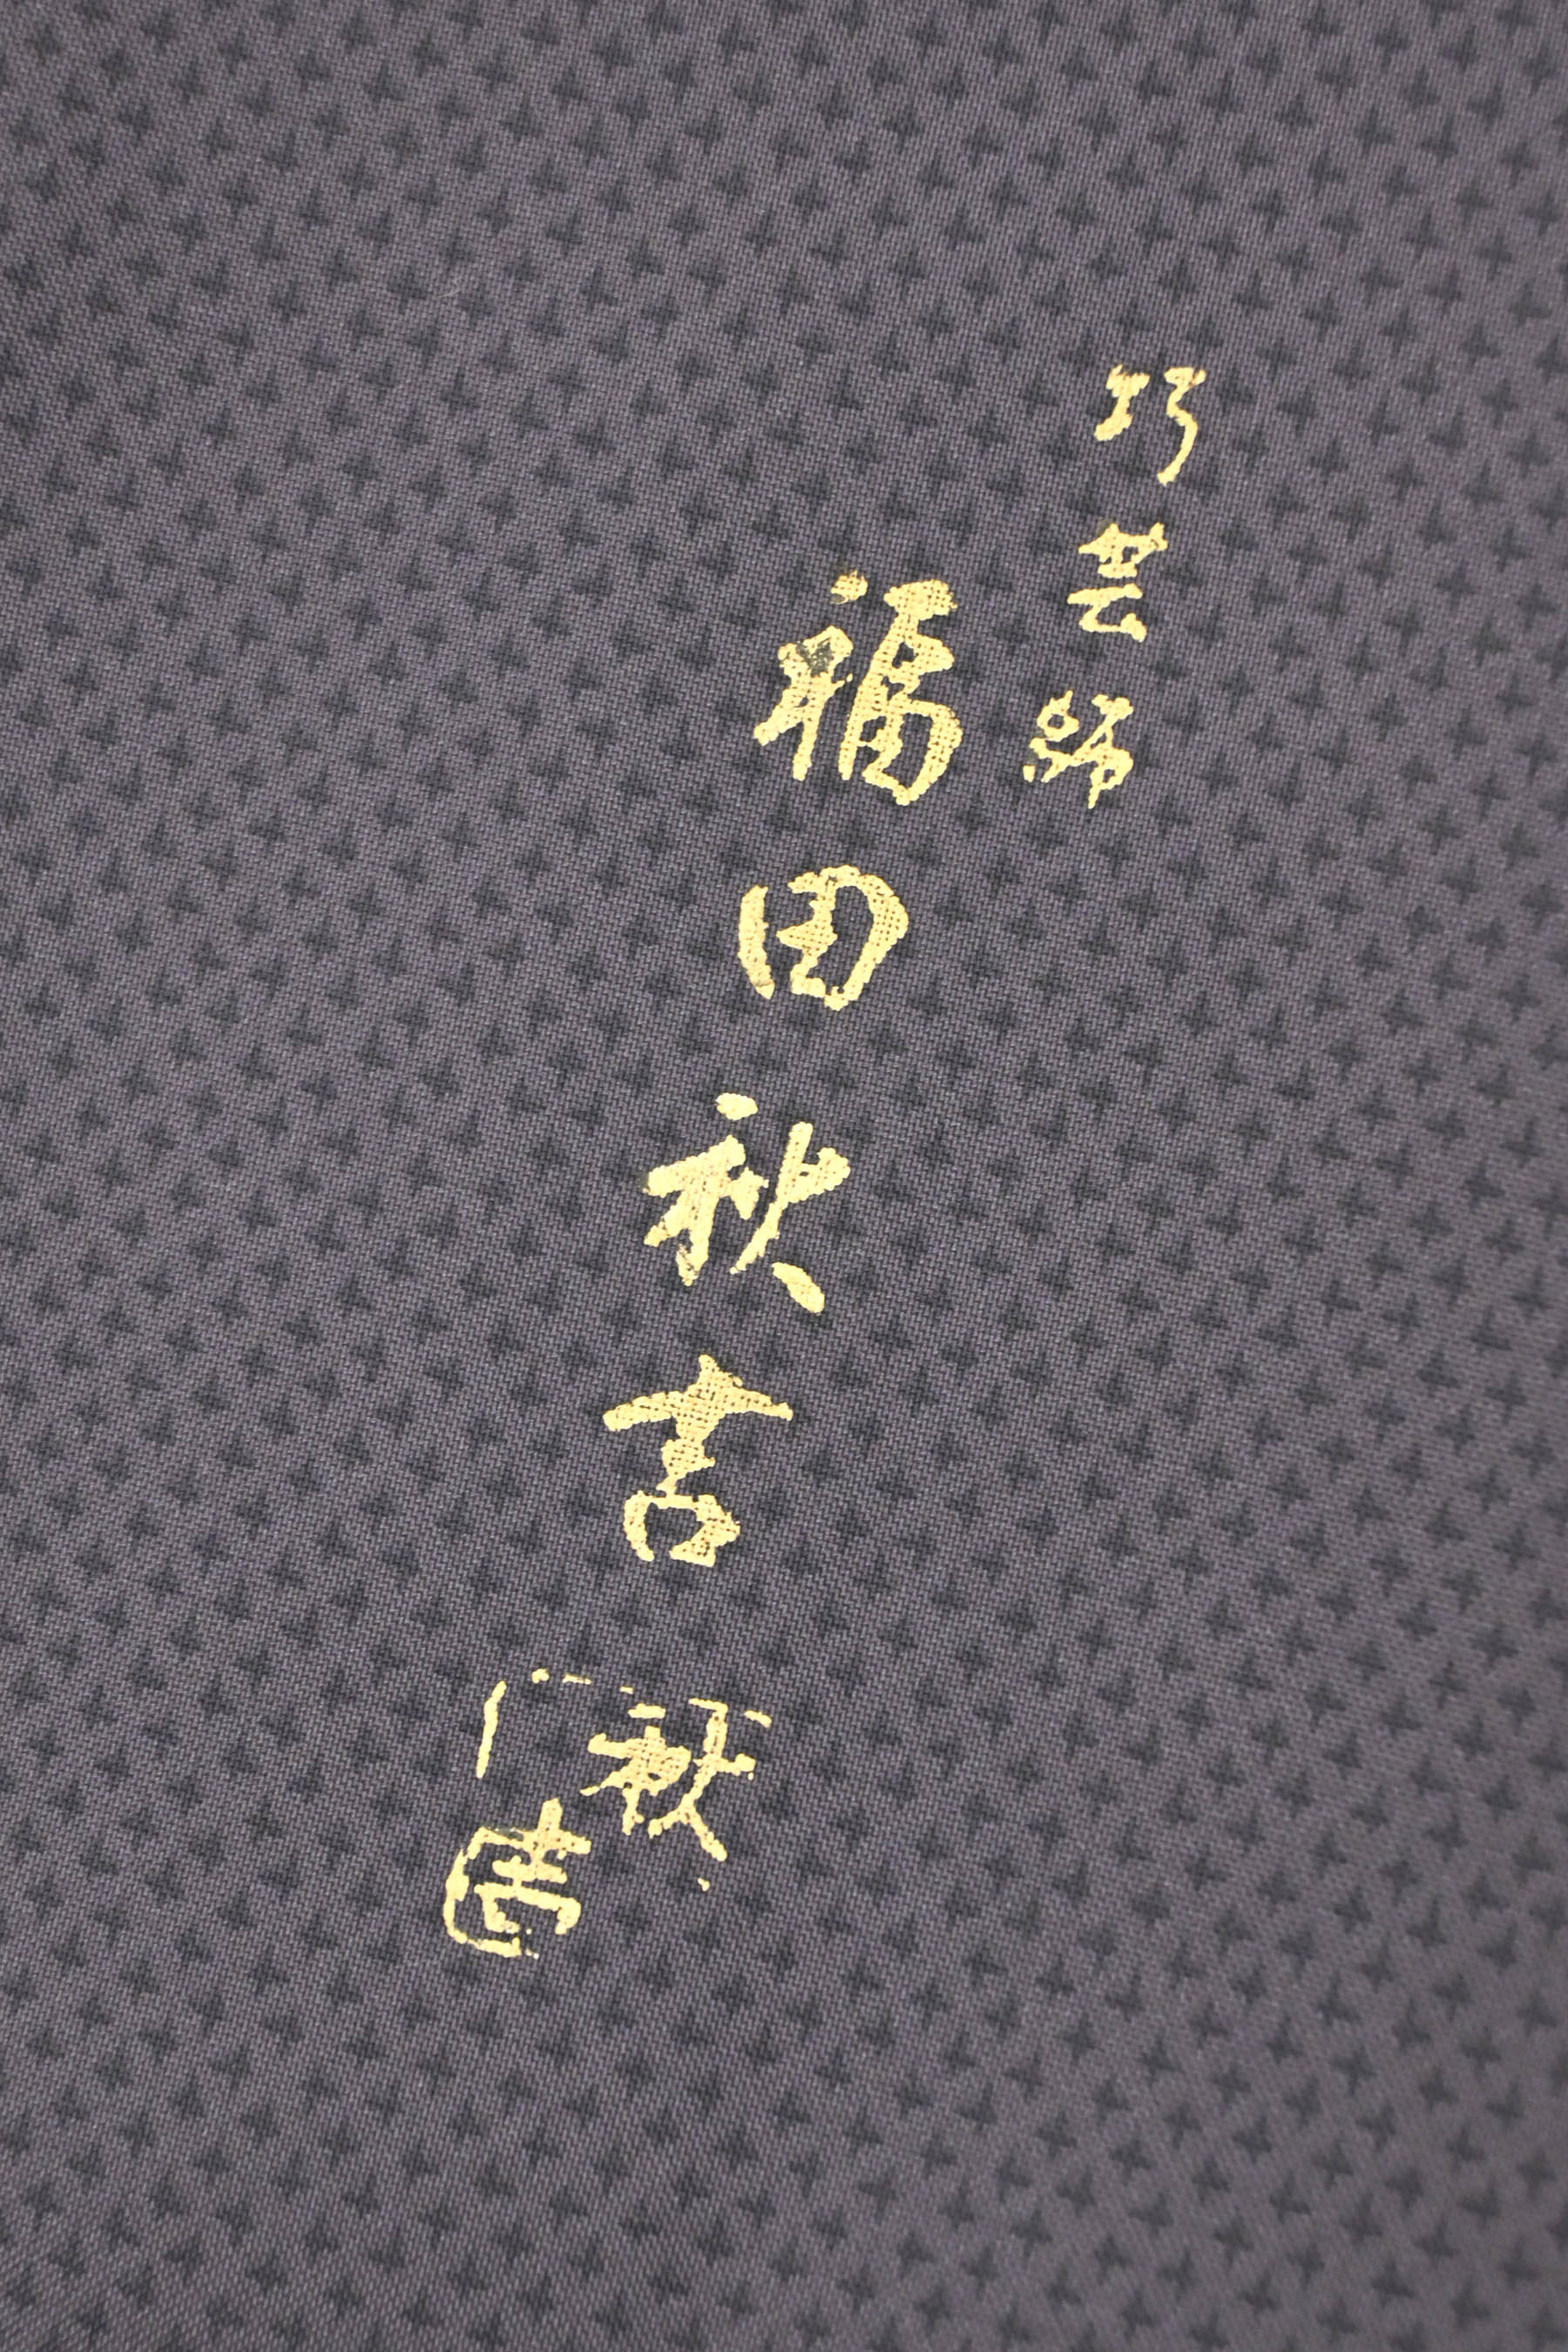 巧芸師
福田秋吉
秋吉